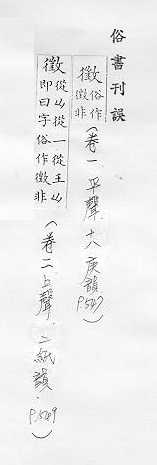 俗書刊誤
徵俗作徴非(卷一、平聲、十八庚韻 P.547)
徵從山從一從王山即曰字俗作徴非
(卷二、上聲、二紙韻、P.549)